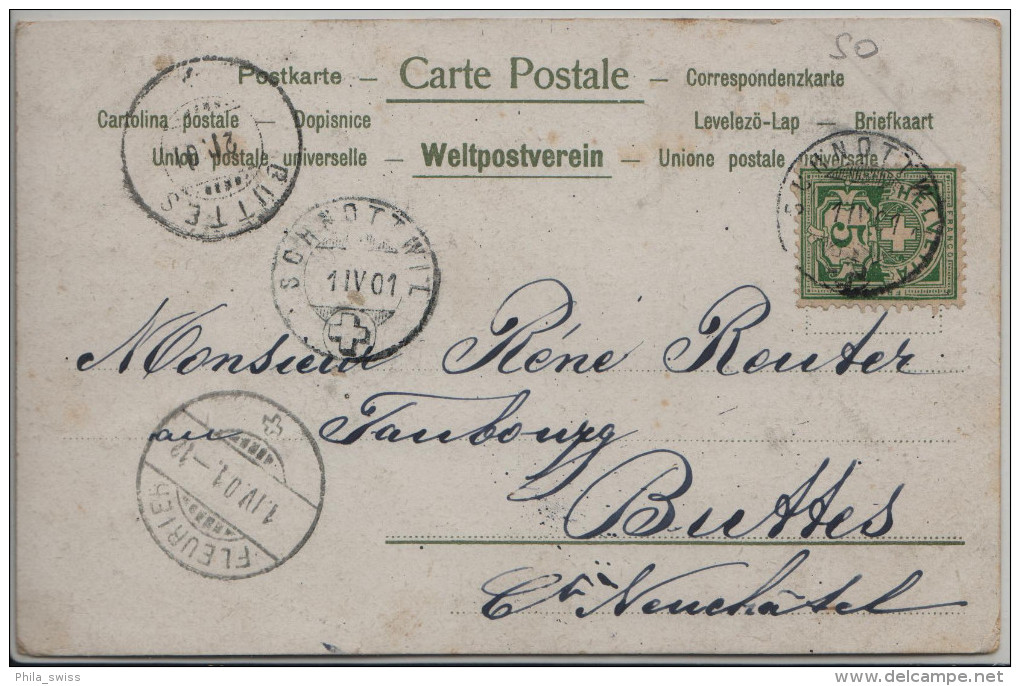 50
Postkarte – Carte Postale – Correspondenzkarte
Cartolina postale – Dopisnice Levelezö-Lap – Briefkaart
Union postale universelle – Weltpostverein – Unione postale universale
BUTTES
SCHNOTTWIL
1 IV 01
SCHNOTTWIL
1 IV 01
HELVETIA
5
Monsieur Réne Reuter
au Faubourg
Buttes
Ct. Neuchâtel
FLEURIER
1.IV.01.–12
Phila_swiss
delcampe.net